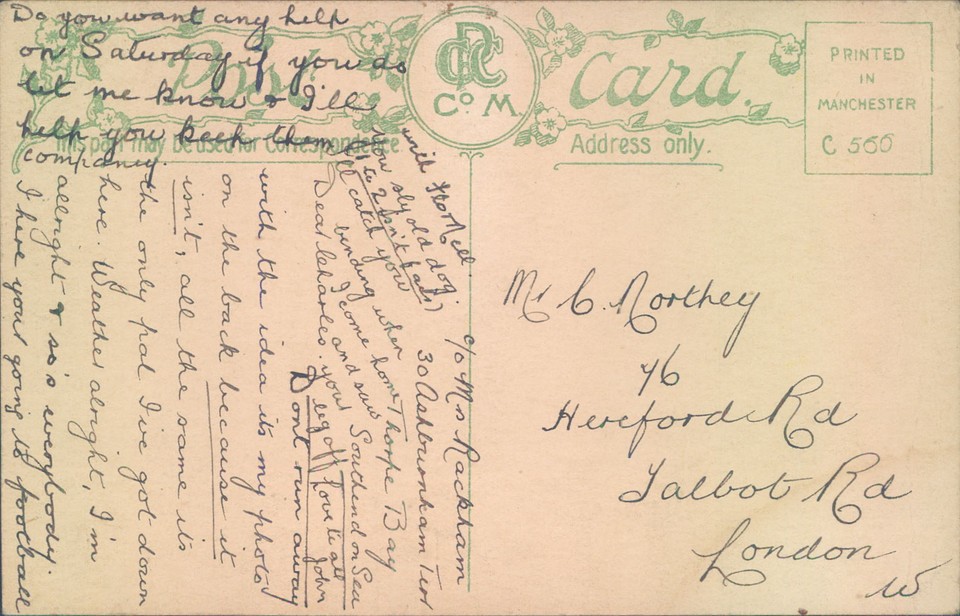 Do you want any help
on Saturday if you do
let me know & I'll
help you keep them
company.
Post Card.
C R D
Co M.
This part may be used for Correspondence
Address only.
PRINTED
IN
MANCHESTER
C 560
c/o Mrs Rackham
30 Ashburnham Terr
Thorpe Bay
Southend on Sea
Dear Charles.
Dont run away
with the idea its my photo
on the back because it
isn't, all the same its
the only pal I've got down
here. Weather alright, I'm
allright & so's everybody.
I here your going to football
with Nell.
you sly old dog.
I'll catch you
bending when
I come home
and saw your
leg off
love to all
John
Mr C. Northey
76
Hereford Rd
Talbot Rd
London
W